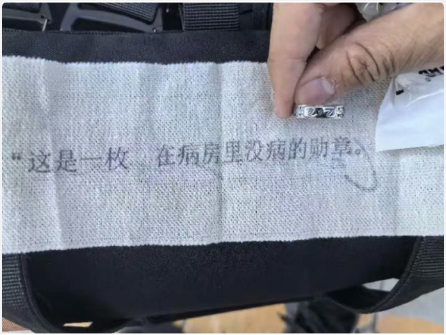 “这是一枚 在病房里没病的勋章。